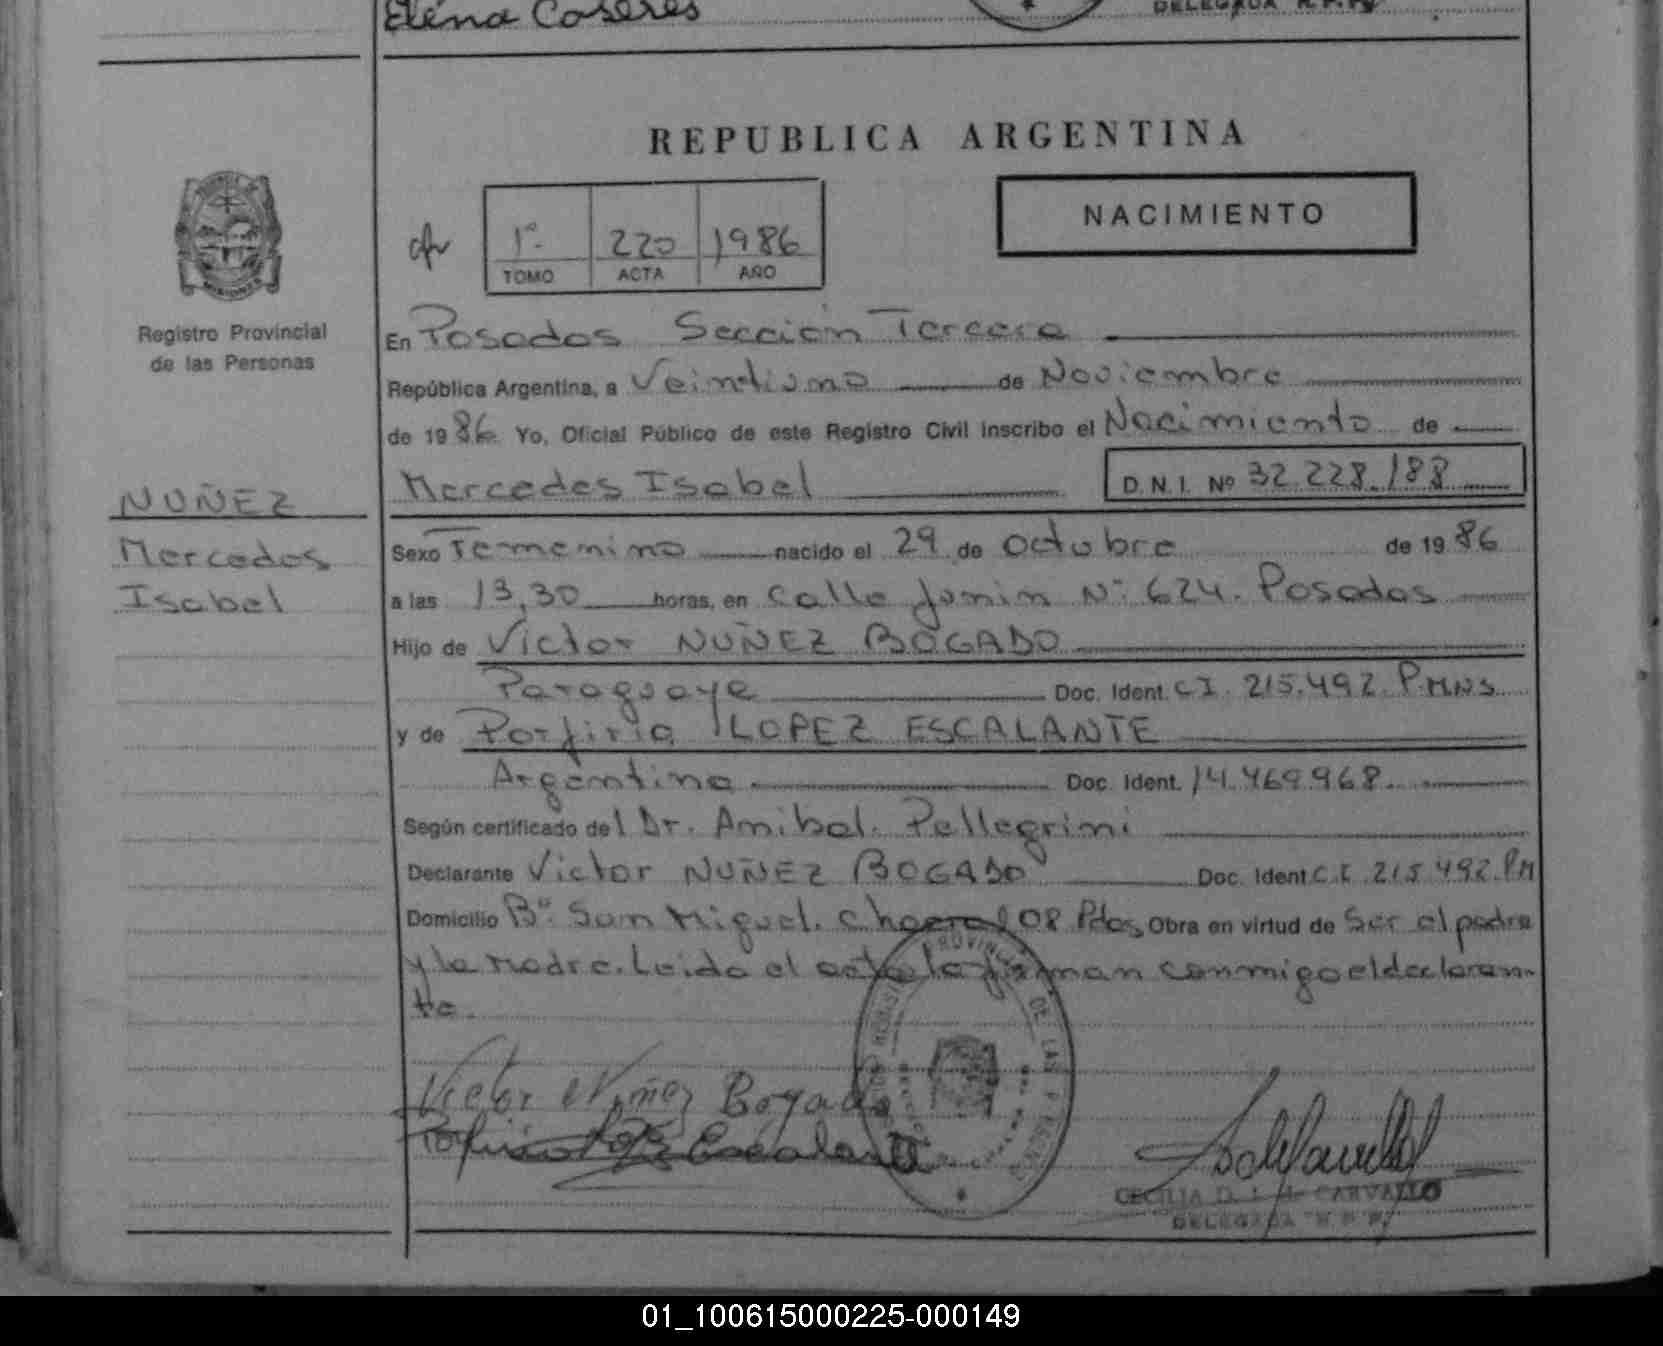 Elena Caseres
DELEGADA R.P.P.
REPUBLICA ARGENTINA
NACIMIENTO
1º 220 1986
TOMO ACTA AÑO
MISIONES
Registro Provincial
de las Personas
En Posadas Sección Tercera
República Argentina, a Veintiuno de Noviembre
de 1986 Yo, Oficial Público de este Registro Civil inscribo el Nacimiento de
Mercedes Isabel D.N.I. Nº 32.228.188
NUÑEZ
Mercedes
Isabel
Sexo Femenino nacido el 29 de Octubre de 1986
a las 13,30 horas, en Calle Junin Nº 624. Posadas
Hijo de Victor NUÑEZ BOGADO
Paraguaya Doc. Ident. C.I. 215.492. P.MNS
y de Porfiria LOPEZ ESCALANTE
Argentina Doc. Ident. 14.469.968
Según certificado del Dr. Anibal. Pellegrini
Declarante Victor NUÑEZ BOGADO Doc. Ident C.I. 215.492.PM
Domicilio Bº San Miguel. Chacra 108 Pdas Obra en virtud de Ser el padre
y la Madre. Leida el acta la firman conmigo el declaran-
te.
Victor Nuñez Bogado
Porfiria Lopez Escalante
PROVINCIAL DE LAS
CECILIA D. CARVALLO
DELEGADA R.P.P.
01_100615000225-000149